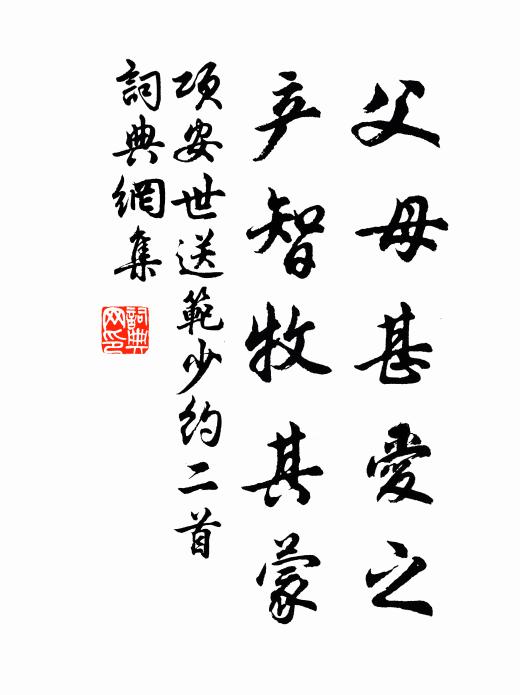 父母甚愛之
弃智牧其蒙
項安世送範少約二首
詞典網集
詞典网印